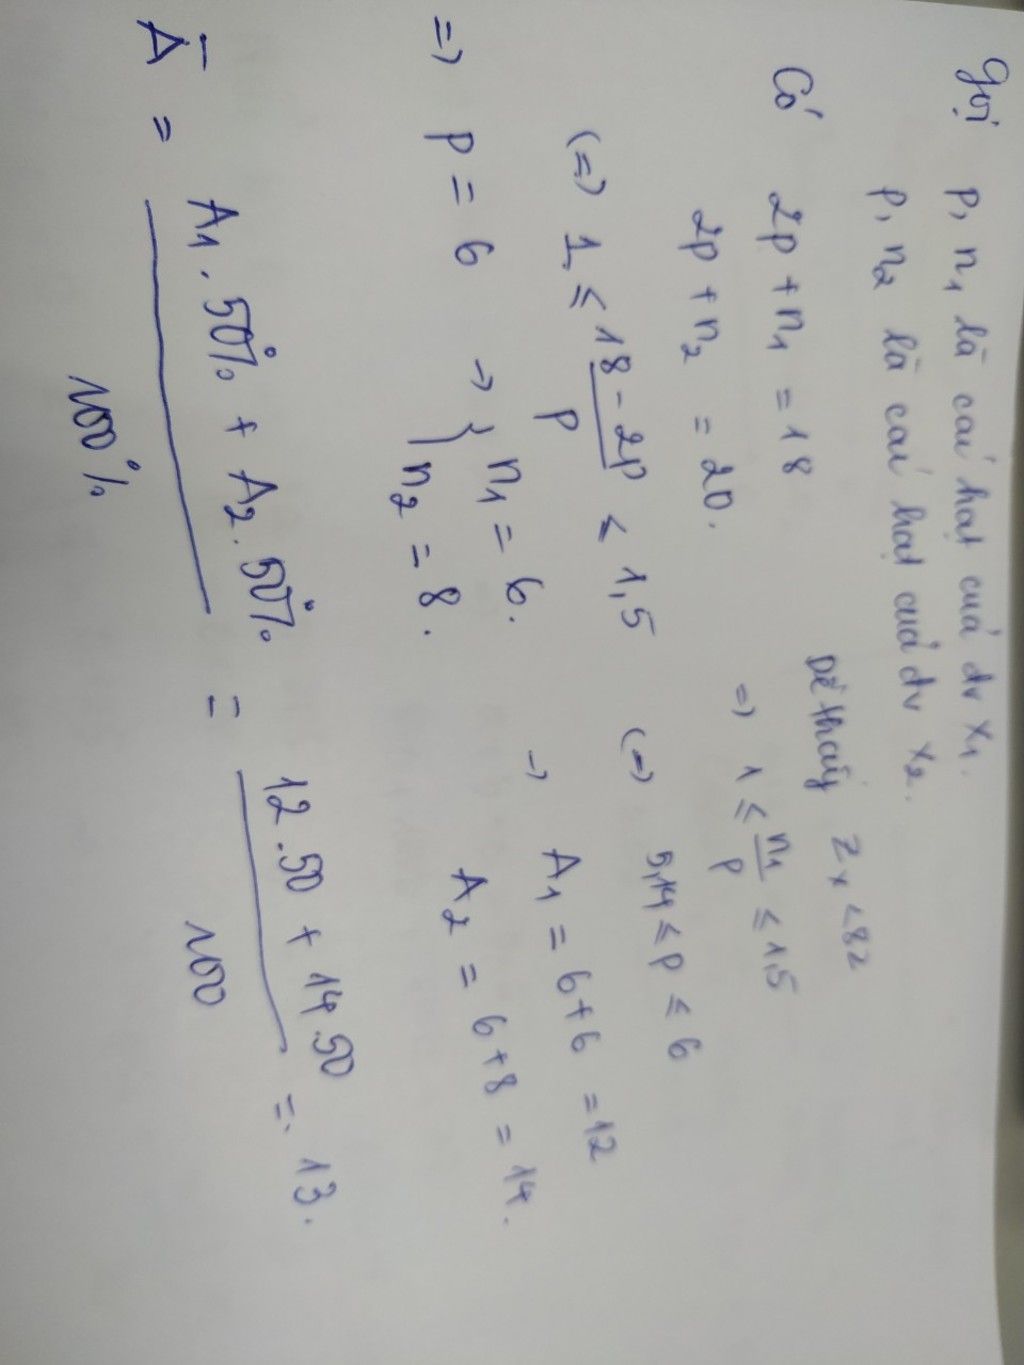 Gọi p, n₁ là các hạt của đv X₁.
p, n₂ là các hạt của đv X₂.
Có 2p + n₁ = 18
2p + n₂ = 20.
Dễ thấy Zₓ < 82
=> 1 ≤ n₁/p ≤ 1,5
(=) 1 ≤ (18 - 2p)/p ≤ 1,5 (=) 5,14 ≤ p ≤ 6
=> p = 6 → { n₁ = 6. → A₁ = 6 + 6 = 12
n₂ = 8. A₂ = 6 + 8 = 14.
Ā = (A₁ . 50% + A₂ . 50%)/100% = (12 . 50 + 14 . 50)/100 = 13.